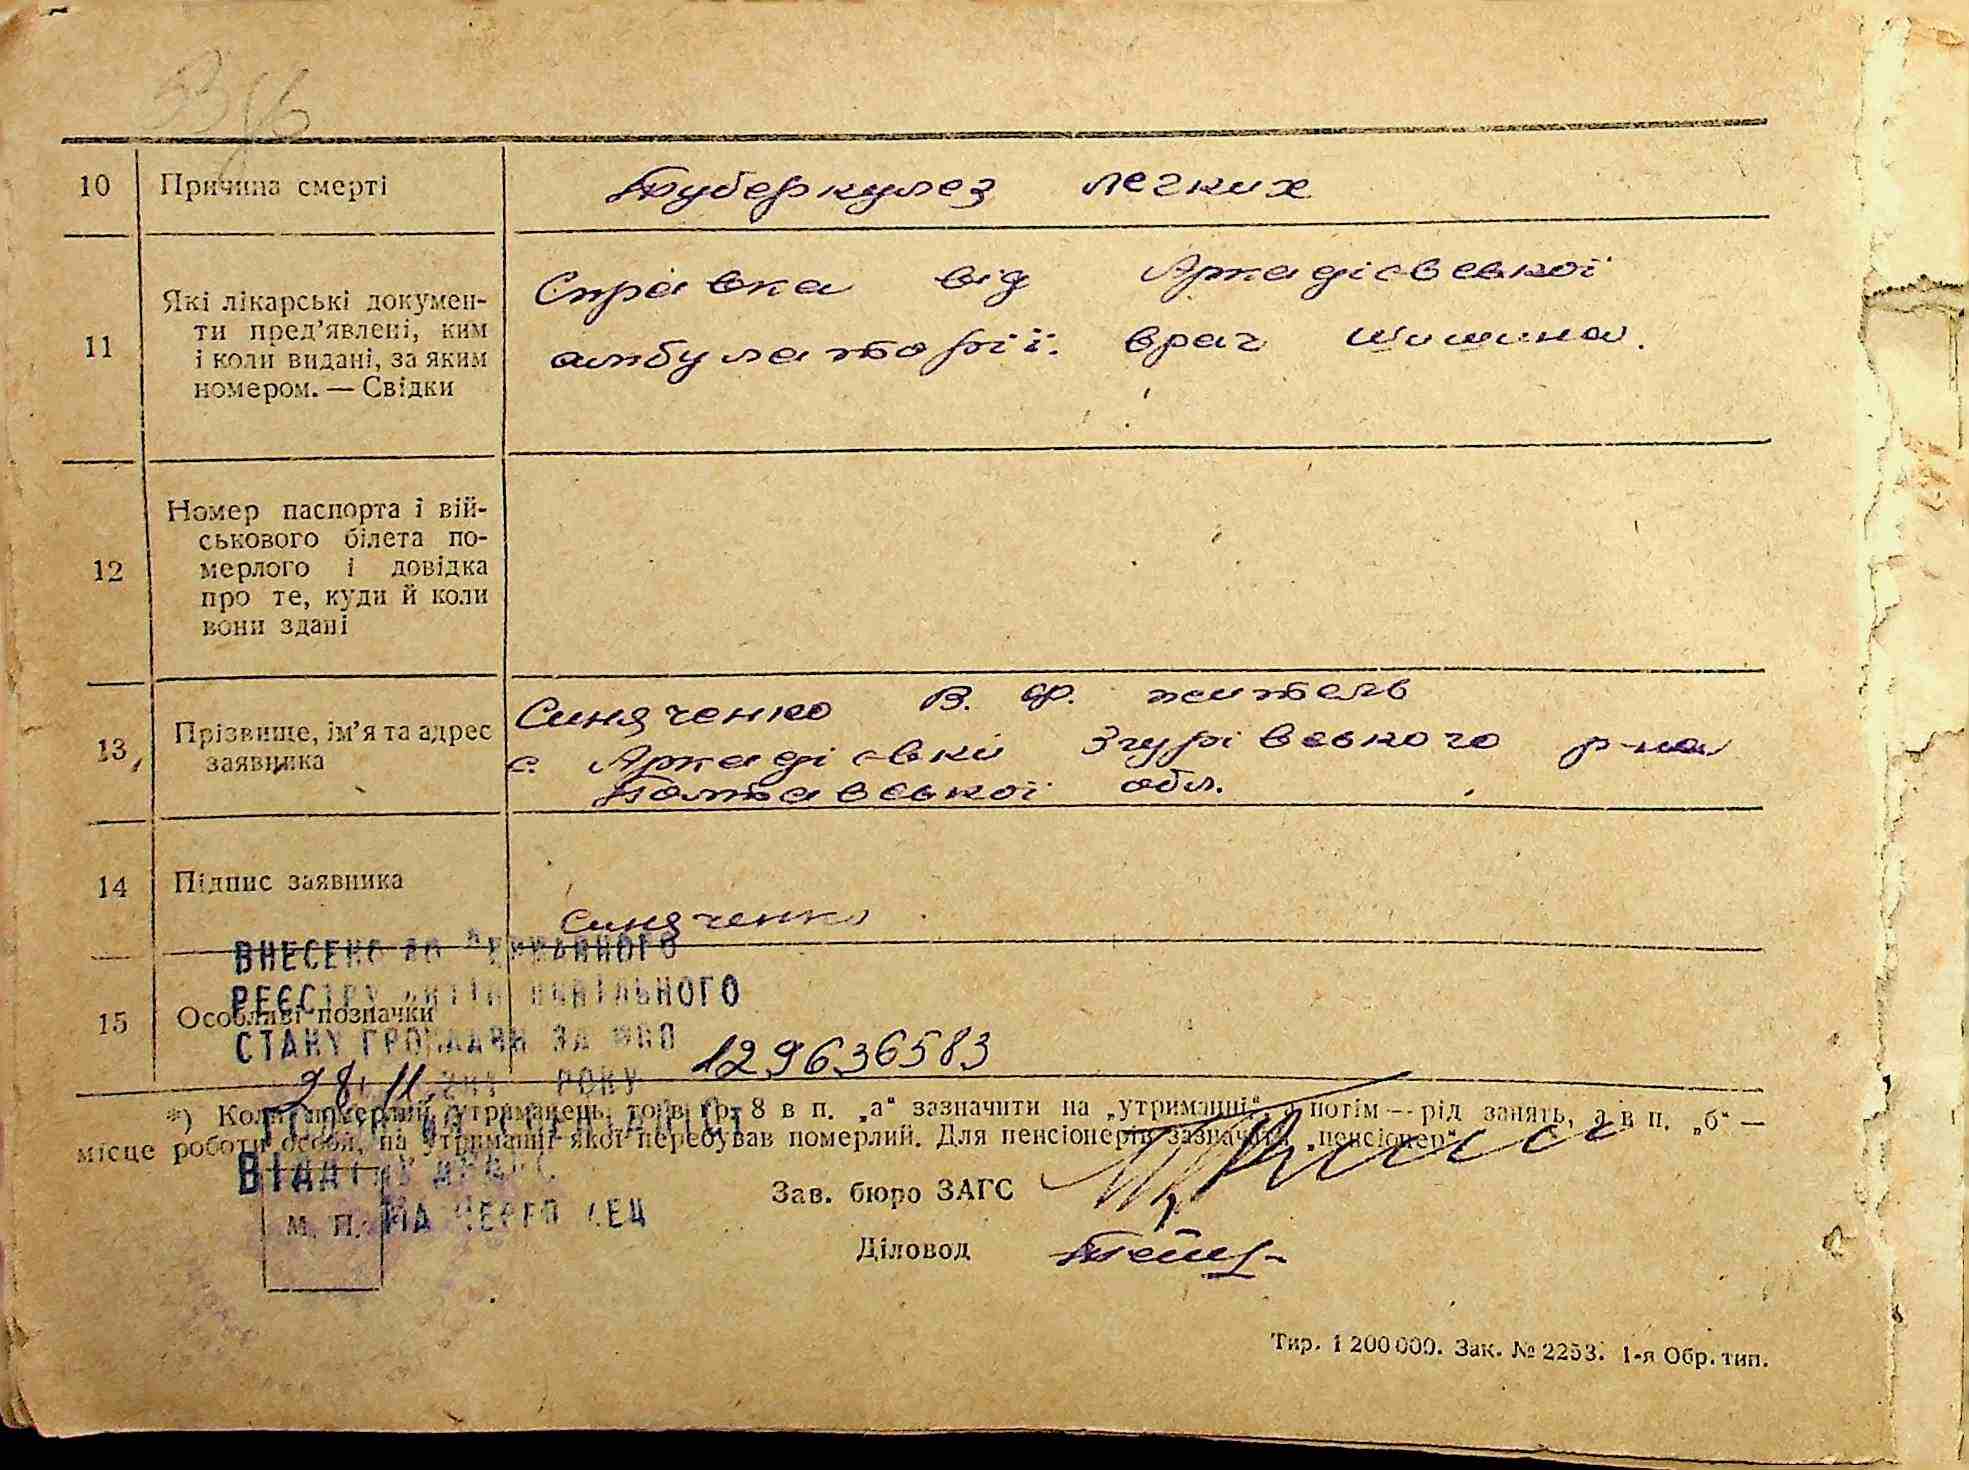 10 Причина смерті Туберкулез легких
11 Які лікарські докумен-
ти пред’явлені, ким
і коли видані, за яким
номером. — Свідки
Справка від Аркадієвської
амбулаторії. врач Шишина.
12 Номер паспорта і вій-
ськового білета по-
мерлого і довідка
про те, куди й коли
вони здані
13 Прізвище, ім’я та адрес
заявника
Синяченко В. Ф. житель
с. Аркадієвки Згурівського р-на
Полтавської обл.
14 Підпис заявника
Синяченко
15 Особливі позначки
ВНЕСЕНО ДО ДЕРЖАВНОГО
РЕЄСТРУ АКТІВ ЦИВІЛЬНОГО
СТАНУ ГРОМАДЯН ЗА №
129636583
28 11 РОКУ
*) Коли померлий утриманець, то в гр. 8 в п. „а“ зазначити на „утриманні“, а потім — рід занять, а в п. „б“ —
місце роботи особи, на утриманні якої перебував померлий. Для пенсіонерів зазначити „пенсіонер“.
ГОЛОВНИЙ СПЕЦІАЛІСТ
ВІДДІЛУ ДРАЦС
Зав. бюро ЗАГС
М. П.
Діловод
Тир. 1 200 000. Зак. № 2253. 1-я Обр. тип.